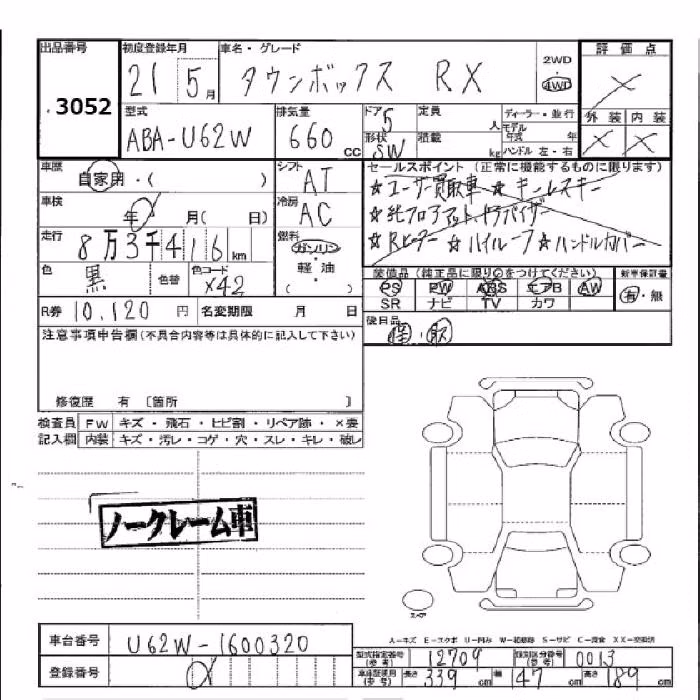 出品番号 初度登録年月 車名・グレード 2WD 評価点
3052 21 5月 タウンボックス RX 4WD ×
型式 排気量 ドア 定員 ディーラー・並行 外装 内装
ABA-U62W 660cc 5 人 モデル年式 年 × ×
形状 積載 kg ハンドル 左・右
SW
車歴 シフト セールスポイント (正常に機能するものに限ります)
自家用・( ) AT ☆ユーザー買取車 ☆キーレスキー
車検 冷房 ☆純フロアマット、ドアバイザー
年 月( 日) AC ☆Rヒーター ☆ハイルーフ ☆ハンドルカバー
走行 燃料
8万3千416km ガソリン
色 色替 色コード 軽・油 装備品(純正品に限り○をつけてください) 新車保証書
黒 X42 ( ) PS PW ABS エアB AW 有・無
SR ナビ TV カワ
R券 10,120円 名変期限 月 日 後日品
注意事項申告欄(不具合内容等は具体的に記入して下さい) 取
修復歴 有 〔箇所 〕
検査員 FW キズ・飛石・ヒビ割・リペア跡・×要
記入欄 内装 キズ・汚レ・コゲ・穴・スレ・キレ・破レ
ノークレーム車
スペア
A-キズ E-エクボ U-凹み W-補修跡 S-サビ C-腐食 XX-交換済
車台番号 U62W-1600320
登録番号
型式指定番号(参考) 12709 類別区分番号(参考) 0013
長さ 339cm 幅 147cm 高さ 189cm